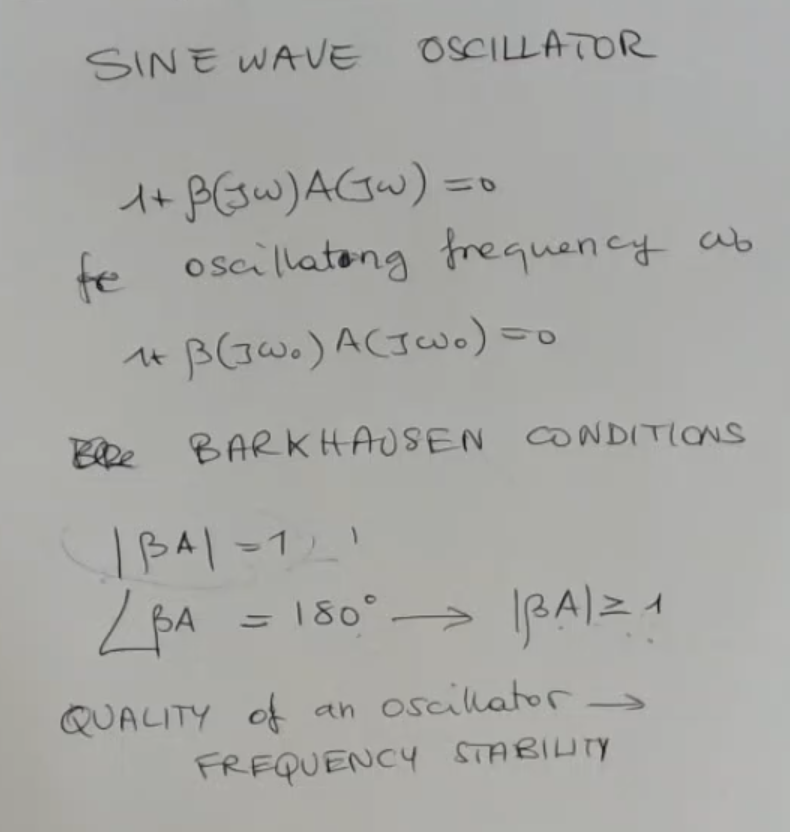 SINE WAVE OSCILLATOR
1+ β(Jω)A(Jω) =0
oscillatong frequency
1+ β(Jω₀) A(Jω₀) =0
BARKHAUSEN CONDITIONS
|βA| =1
∠βA = 180° → |βA| ≥ 1
QUALITY of an oscillator →
FREQUENCY STABILITY